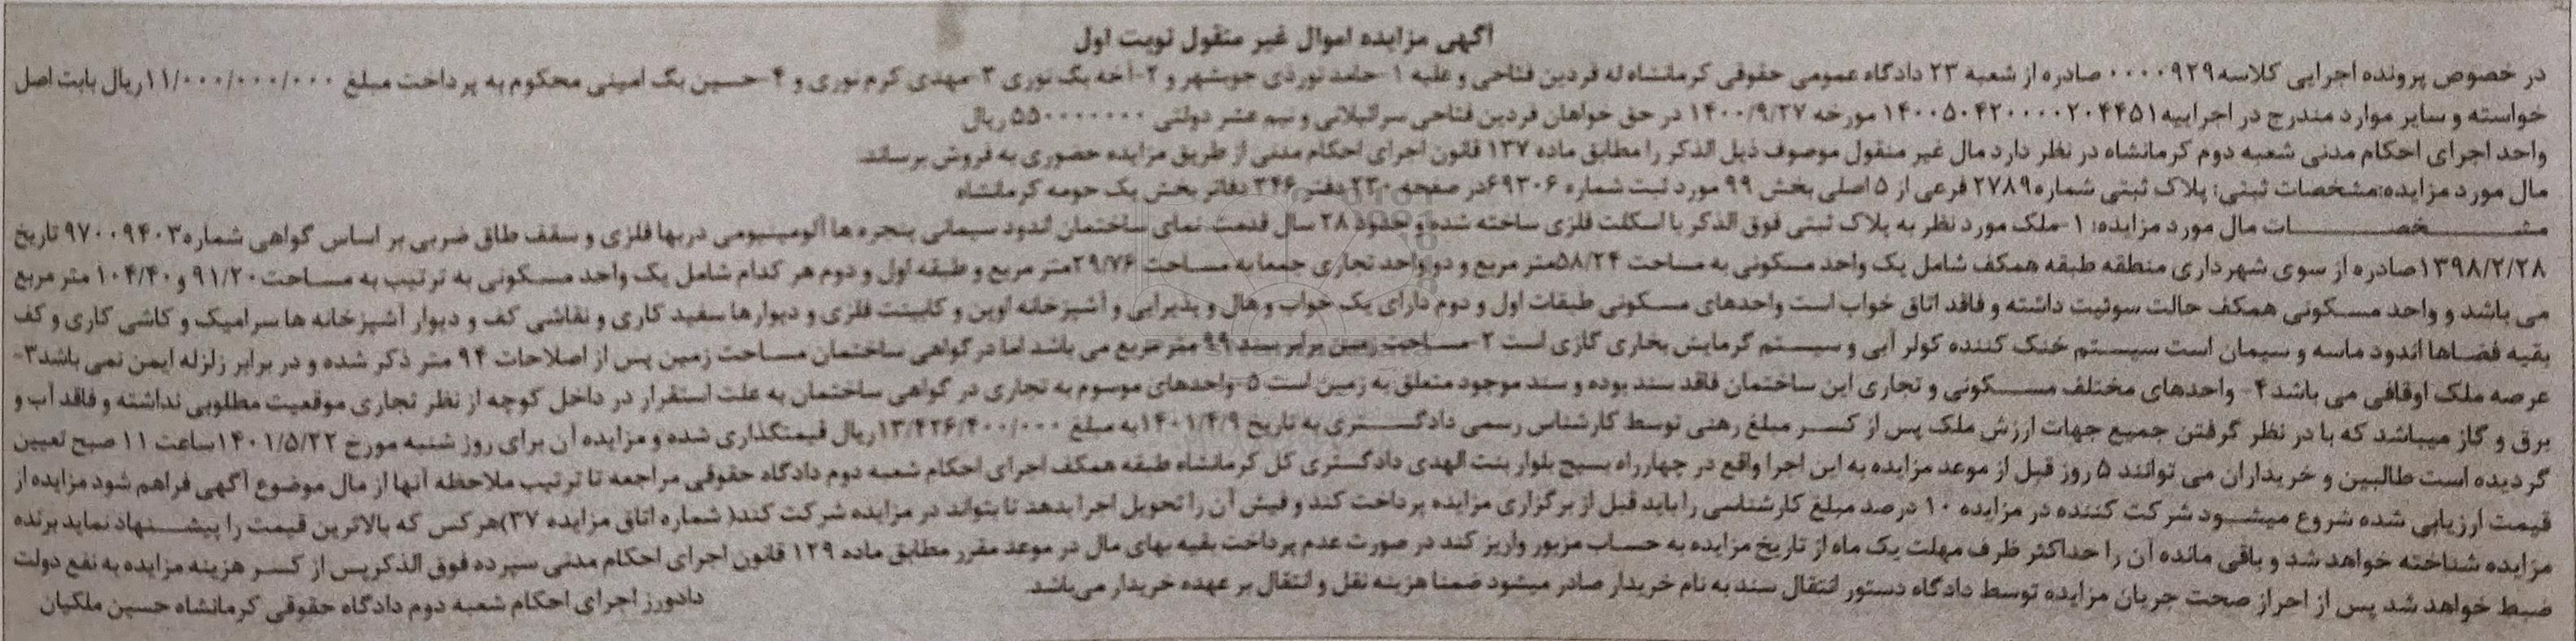 آگهی مزایده اموال غیر منقول نوبت اول
در خصوص پرونده اجرایی کلاسه ۰۰۰۰۹۲۹ صادره از شعبه ۲۳ دادگاه عمومی حقوقی کرمانشاه له فردین فتاحی و علیه ۱- حامد نوردی جوبشهر و ۲- آخه بک نوری ۳- مهدی کرم نوری و ۴- حسین بگ امینی محکوم به پرداخت مبلغ ۱۱/۰۰۰/۰۰۰/۰۰۰ ریال بابت اصل
خواسته و سایر موارد مندرج در اجراییه ۱۴۰۰۵۰۴۲۰۰۰۰۲۰۴۴۵۱ مورخه ۱۴۰۰/۹/۲۷ در حق خواهان فردین فتاحی سرائیلانی و نیم عشر دولتی ۵۵۰۰۰۰۰۰۰ ریال
واحد اجرای احکام مدنی شعبه دوم کرمانشاه در نظر دارد مال غیر منقول موصوف ذیل الذکر را مطابق ماده ۱۳۷ قانون اجرای احکام مدنی از طریق مزایده حضوری به فروش برساند.
مال مورد مزایده:مشخصات ثبتی: پلاک ثبتی شماره ۲۷۸۹ فرعی از ۵ اصلی بخش ۹۹ مورد ثبت شماره ۶۹۳۰۶ در صفحه ۲۳۰ دفتر ۳۴۶ دفاتر بخش یک حومه کرمانشاه
مشخصات مال مورد مزایده: ۱- ملک مورد نظر به پلاک ثبتی فوق الذکر با اسکلت فلزی ساخته شده و حدود ۲۸ سال قدمت نمای ساختمان اندود سیمانی پنجره ها آلومینیومی دربها فلزی و سقف طاق ضربی بر اساس گواهی شماره ۹۷۰۰۹۴۰۳ تاریخ
۱۳۹۸/۲/۲۸ صادره از سوی شهرداری منطقه طبقه همکف شامل یک واحد مسکونی به مساحت ۵۸/۲۴ متر مربع و دو واحد تجاری جمعا به مساحت ۲۹/۷۶ متر مربع و طبقه اول و دوم هر کدام شامل یک واحد مسکونی به ترتیب به مساحت ۹۱/۲۰ و ۱۰۴/۴۰ متر مربع
می باشد و واحد مسکونی همکف حالت سوئیت داشته و فاقد اتاق خواب است واحدهای مسکونی طبقات اول و دوم دارای یک خواب و هال و پذیرایی و آشپزخانه اوپن و کابینت فلزی و دیوارها سفید کاری و نقاشی کف و دیوار آشپزخانه ها سرامیک و کاشی کاری و کف
بقیه فضاها اندود ماسه و سیمان است سیستم خنک کننده کولر آبی و سیستم گرمایش بخاری گازی است ۲- مساحت زمین برابر سند ۹۹ متر مربع می باشد اما در گواهی ساختمان مساحت زمین پس از اصلاحات ۹۴ متر ذکر شده و در برابر زلزله ایمن نمی باشد ۳-
عرصه ملک اوقافی می باشد ۴- واحدهای مختلف مسکونی و تجاری این ساختمان فاقد سند بوده و سند موجود متعلق به زمین است ۵- واحدهای موسوم به تجاری در گواهی ساختمان به علت استقرار در داخل کوچه از نظر تجاری موقعیت مطلوبی نداشته و فاقد آب و
برق و گاز میباشد که با در نظر گرفتن جمیع جهات ارزش ملک پس از کسر مبلغ رهنی توسط کارشناس رسمی دادگستری به تاریخ ۱۴۰۱/۴/۹ به مبلغ ۱۳/۴۲۶/۴۰۰/۰۰۰ ریال قیمتگذاری شده و مزایده آن برای روز شنبه مورخ ۱۴۰۱/۵/۲۲ ساعت ۱۱ صبح تعیین
گردیده است طالبین و خریداران می توانند ۵ روز قبل از موعد مزایده به این اجرا واقع در چهارراه بسیج بلوار بنت الهدی دادگستری کل کرمانشاه طبقه همکف اجرای احکام شعبه دوم دادگاه حقوقی مراجعه تا ترتیب ملاحظه آنها از مال موضوع آگهی فراهم شود مزایده از
قیمت ارزیابی شده شروع میشود شرکت کننده در مزایده ۱۰ درصد مبلغ کارشناسی را باید قبل از برگزاری مزایده پرداخت کند و فیش آن را تحویل اجرا بدهد تا بتواند در مزایده شرکت کند( شماره اتاق مزایده ۳۷)هر کس که بالاترین قیمت را پیشنهاد نماید برنده
مزایده شناخته خواهد شد و باقی مانده آن را حداکثر ظرف مهلت یک ماه از تاریخ مزایده به حساب مزبور واریز کند در صورت عدم پرداخت بقیه بهای مال در موعد مقرر مطابق ماده ۱۲۹ قانون اجرای احکام مدنی سپرده فوق الذکر پس از کسر هزینه مزایده به نفع دولت
ضبط خواهد شد پس از احراز صحت جریان مزایده توسط دادگاه دستور انتقال سند به نام خریدار صادر میشود ضمنا هزینه نقل و انتقال بر عهده خریدار می‌باشد.
دادورز اجرای احکام شعبه دوم دادگاه حقوقی کرمانشاه حسین ملکیان